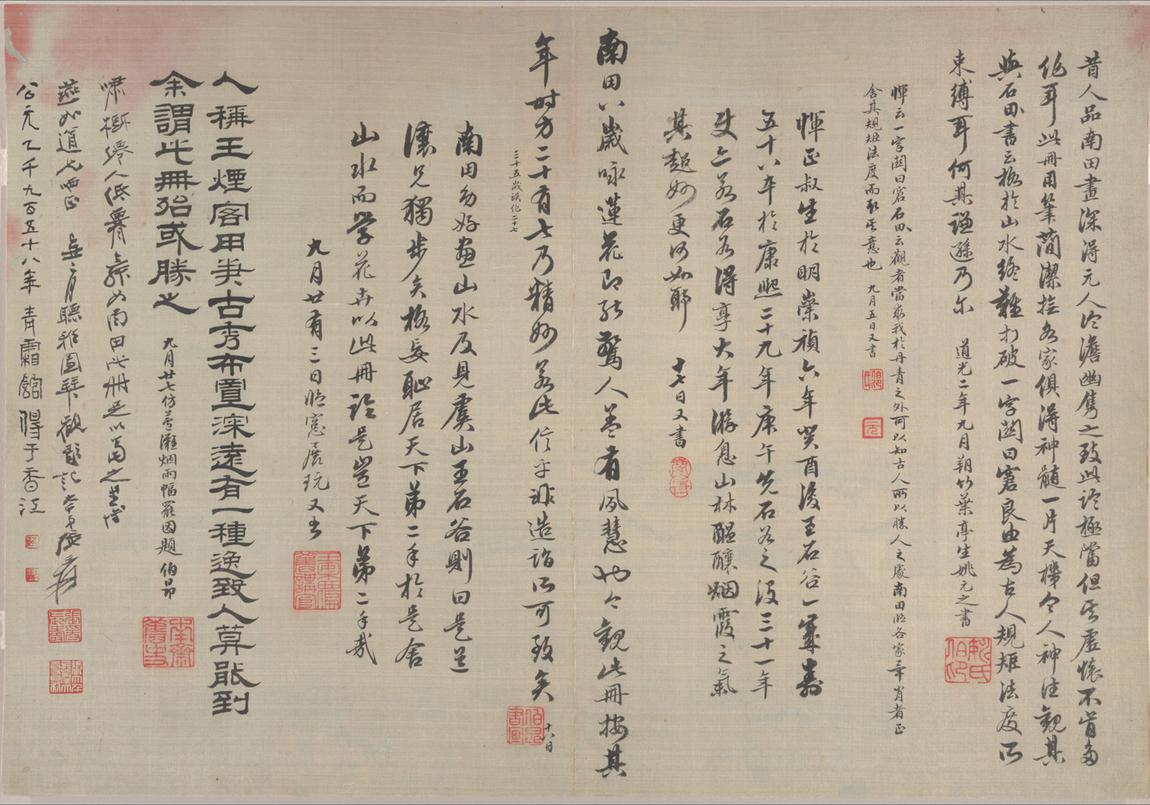 昔人品南田畫深得元人冷澹幽雋之致此論極當但其虛懷不肯多
作耳此冊用筆簡潔撫各家俱得神髓一片天機令人神往觀其
與石田書云格於山水終難打破一字關曰窘良由為古人規矩法度所
束縛耳何其謙遜乃爾 道光二年九月朔竹葉亭生姚元之書
惲云一字關曰窘石田云觀者當求我於丹青之外可以知古人所以勝人之處南田臨各家來肖者正
含其規矩法度而取其意也 九月五日又書
惲正叔生於明崇禎六年癸酉後王石谷一年壽
五十八卒於康熙二十九年庚午先石谷之沒三十一年
使之若石谷得享大年游息山林醞釀烟霞之氣
其超妙更何如耶 十七日又書
南田八歲咏蓮花即能驚人蓋有夙慧也今觀此冊按其
年时方二十有七乃精妙若此信乎非造詣所可致矣 十八日
三十五歲誤作二十七
南田多好畫山水及見虞山王石谷則曰是道
讓兄獨步矣格妄恥居天下第二手於是舍
山水而學花卉以此冊論是豈天下第二手哉
九月廿有三日晴窻展玩又书
人稱王煙客用筆古秀布置深遠有一種逸致人莫能到
余謂此冊殆或勝之
九月廿七仿董瀫烟雨幅罷因題 伯昂
公元乙千九百五十八年 青霜館得于香江